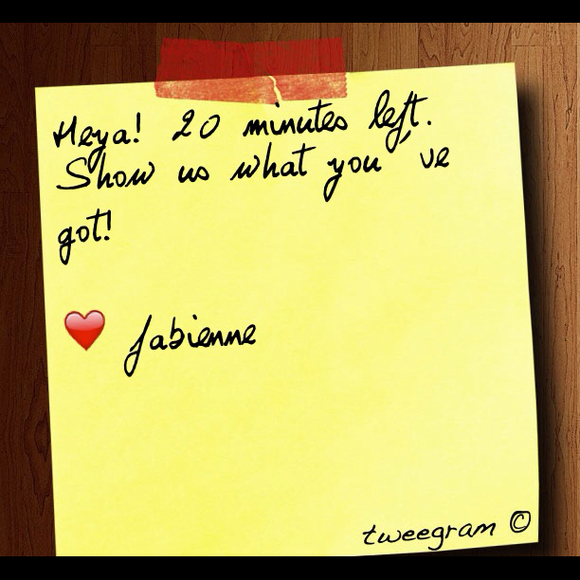 Heya! 20 minutes left.
Show us what you've
got!
❤️ fabienne
tweegram ©